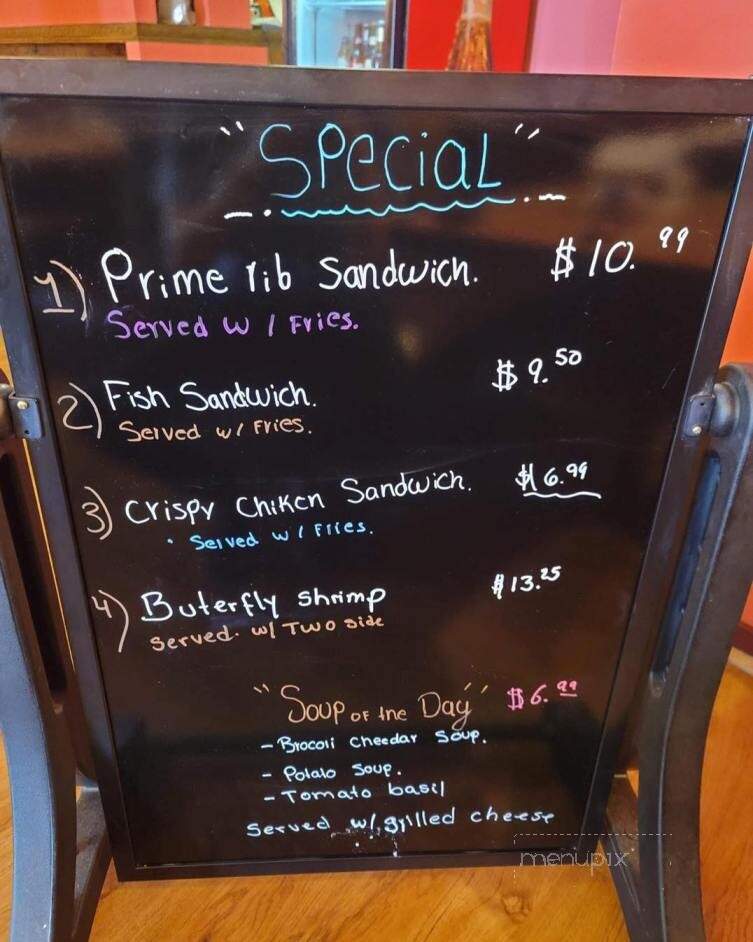 "Special"
1) Prime rib Sandwich. $10.99
Served w/ Fries.
2) Fish Sandwich. $9.50
Served w/ Fries.
3) Crispy Chiken Sandwich. $6.99
· Served w/ Fries.
4) Buterfly shrimp $13.25
Served. w/ Two side
"Soup of the Day" $6.99
- Brocoli Cheedar Soup.
- Potato Soup.
- Tomato basil
Served w/ grilled cheese
menupix